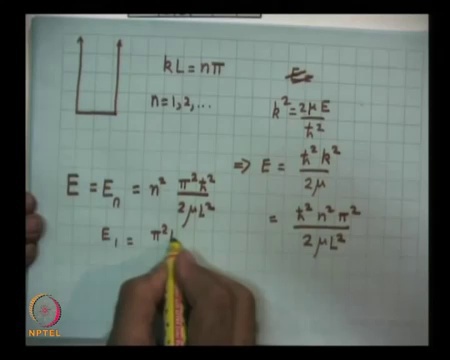 kL = nπ
n = 1, 2, ...
k² = 2μE / ħ²
⇒ E = ħ²k² / 2μ
= ħ²n²π² / 2μL²
E = Eₙ = n² π²ħ² / 2μL²
E₁ = π²
NPTEL